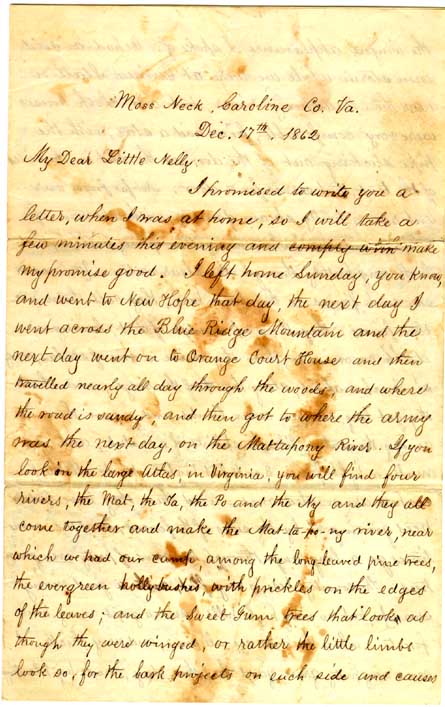 Moss Neck, Caroline Co. Va.
Dec. 17th. 1862
My Dear Little Nelly.
I promised to write you a
letter, when I was at home, so I will take a
few minutes this evening and comply with make
my promise good. I left home Sunday, you know,
and went to New Hope that day, the next day I
went across the Blue Ridge Mountain and the
next day went on to Orange Court House and then
travelled nearly all day through the woods, and where
the road is sandy, and then got to where the army
was the next day, on the Mattapony River. If you
look on the large Atlas, in Virginia, you will find four
rivers, the Mat, the Ta, the Po and the Ny and they all
come together and make the Mat-ta-po-ny river, near
which we had our camp, among the long-leaved pine trees,
the evergreen holly bushes with prickles on the edges
of the leaves; and the sweet Gum trees that look as
though they were winged, or rather the little limbs
look so, for the bark projects on each side and causes